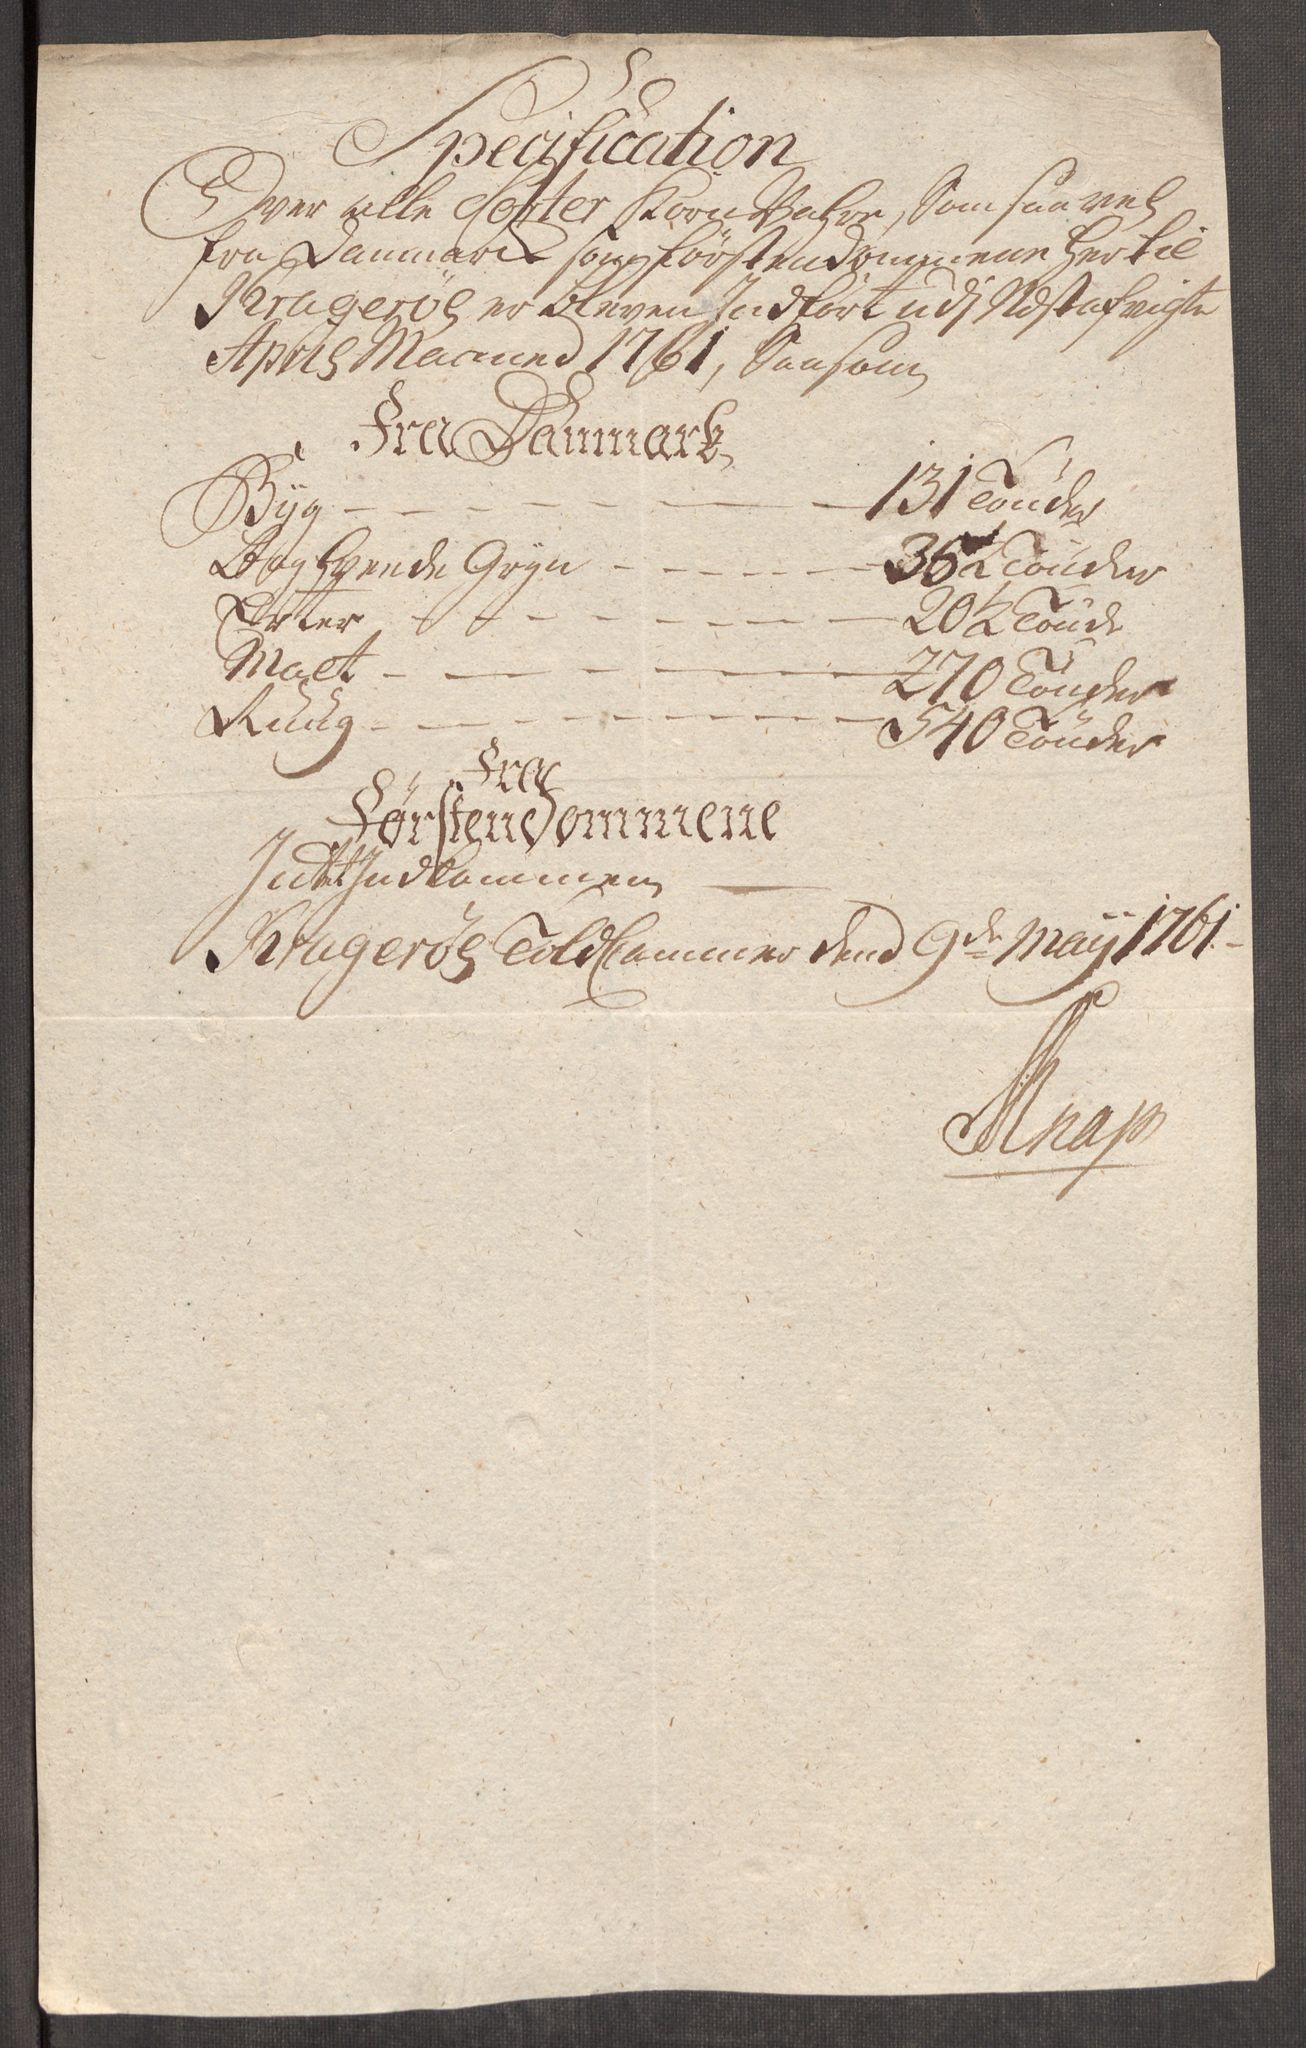 Specification
Over alle Sorter Korn Vahre, Som saa vel
fra Danmark som Förstendommene her til
Krageröe er bleven Indfört udj Ndstafvigte
April Maaned 1761, Saasom
Fra Danmark
Byg 131 Tönder
Boghvende Gryn 36 1/2 Tönder
Erter 20 1/2 Tönde
Malt 270 Tönder
Ruug 540 Tönder
Fra
Förstendommene
Intet Indkommen
Krageröe Told Cammer dend 9de Maij 1761
Knap